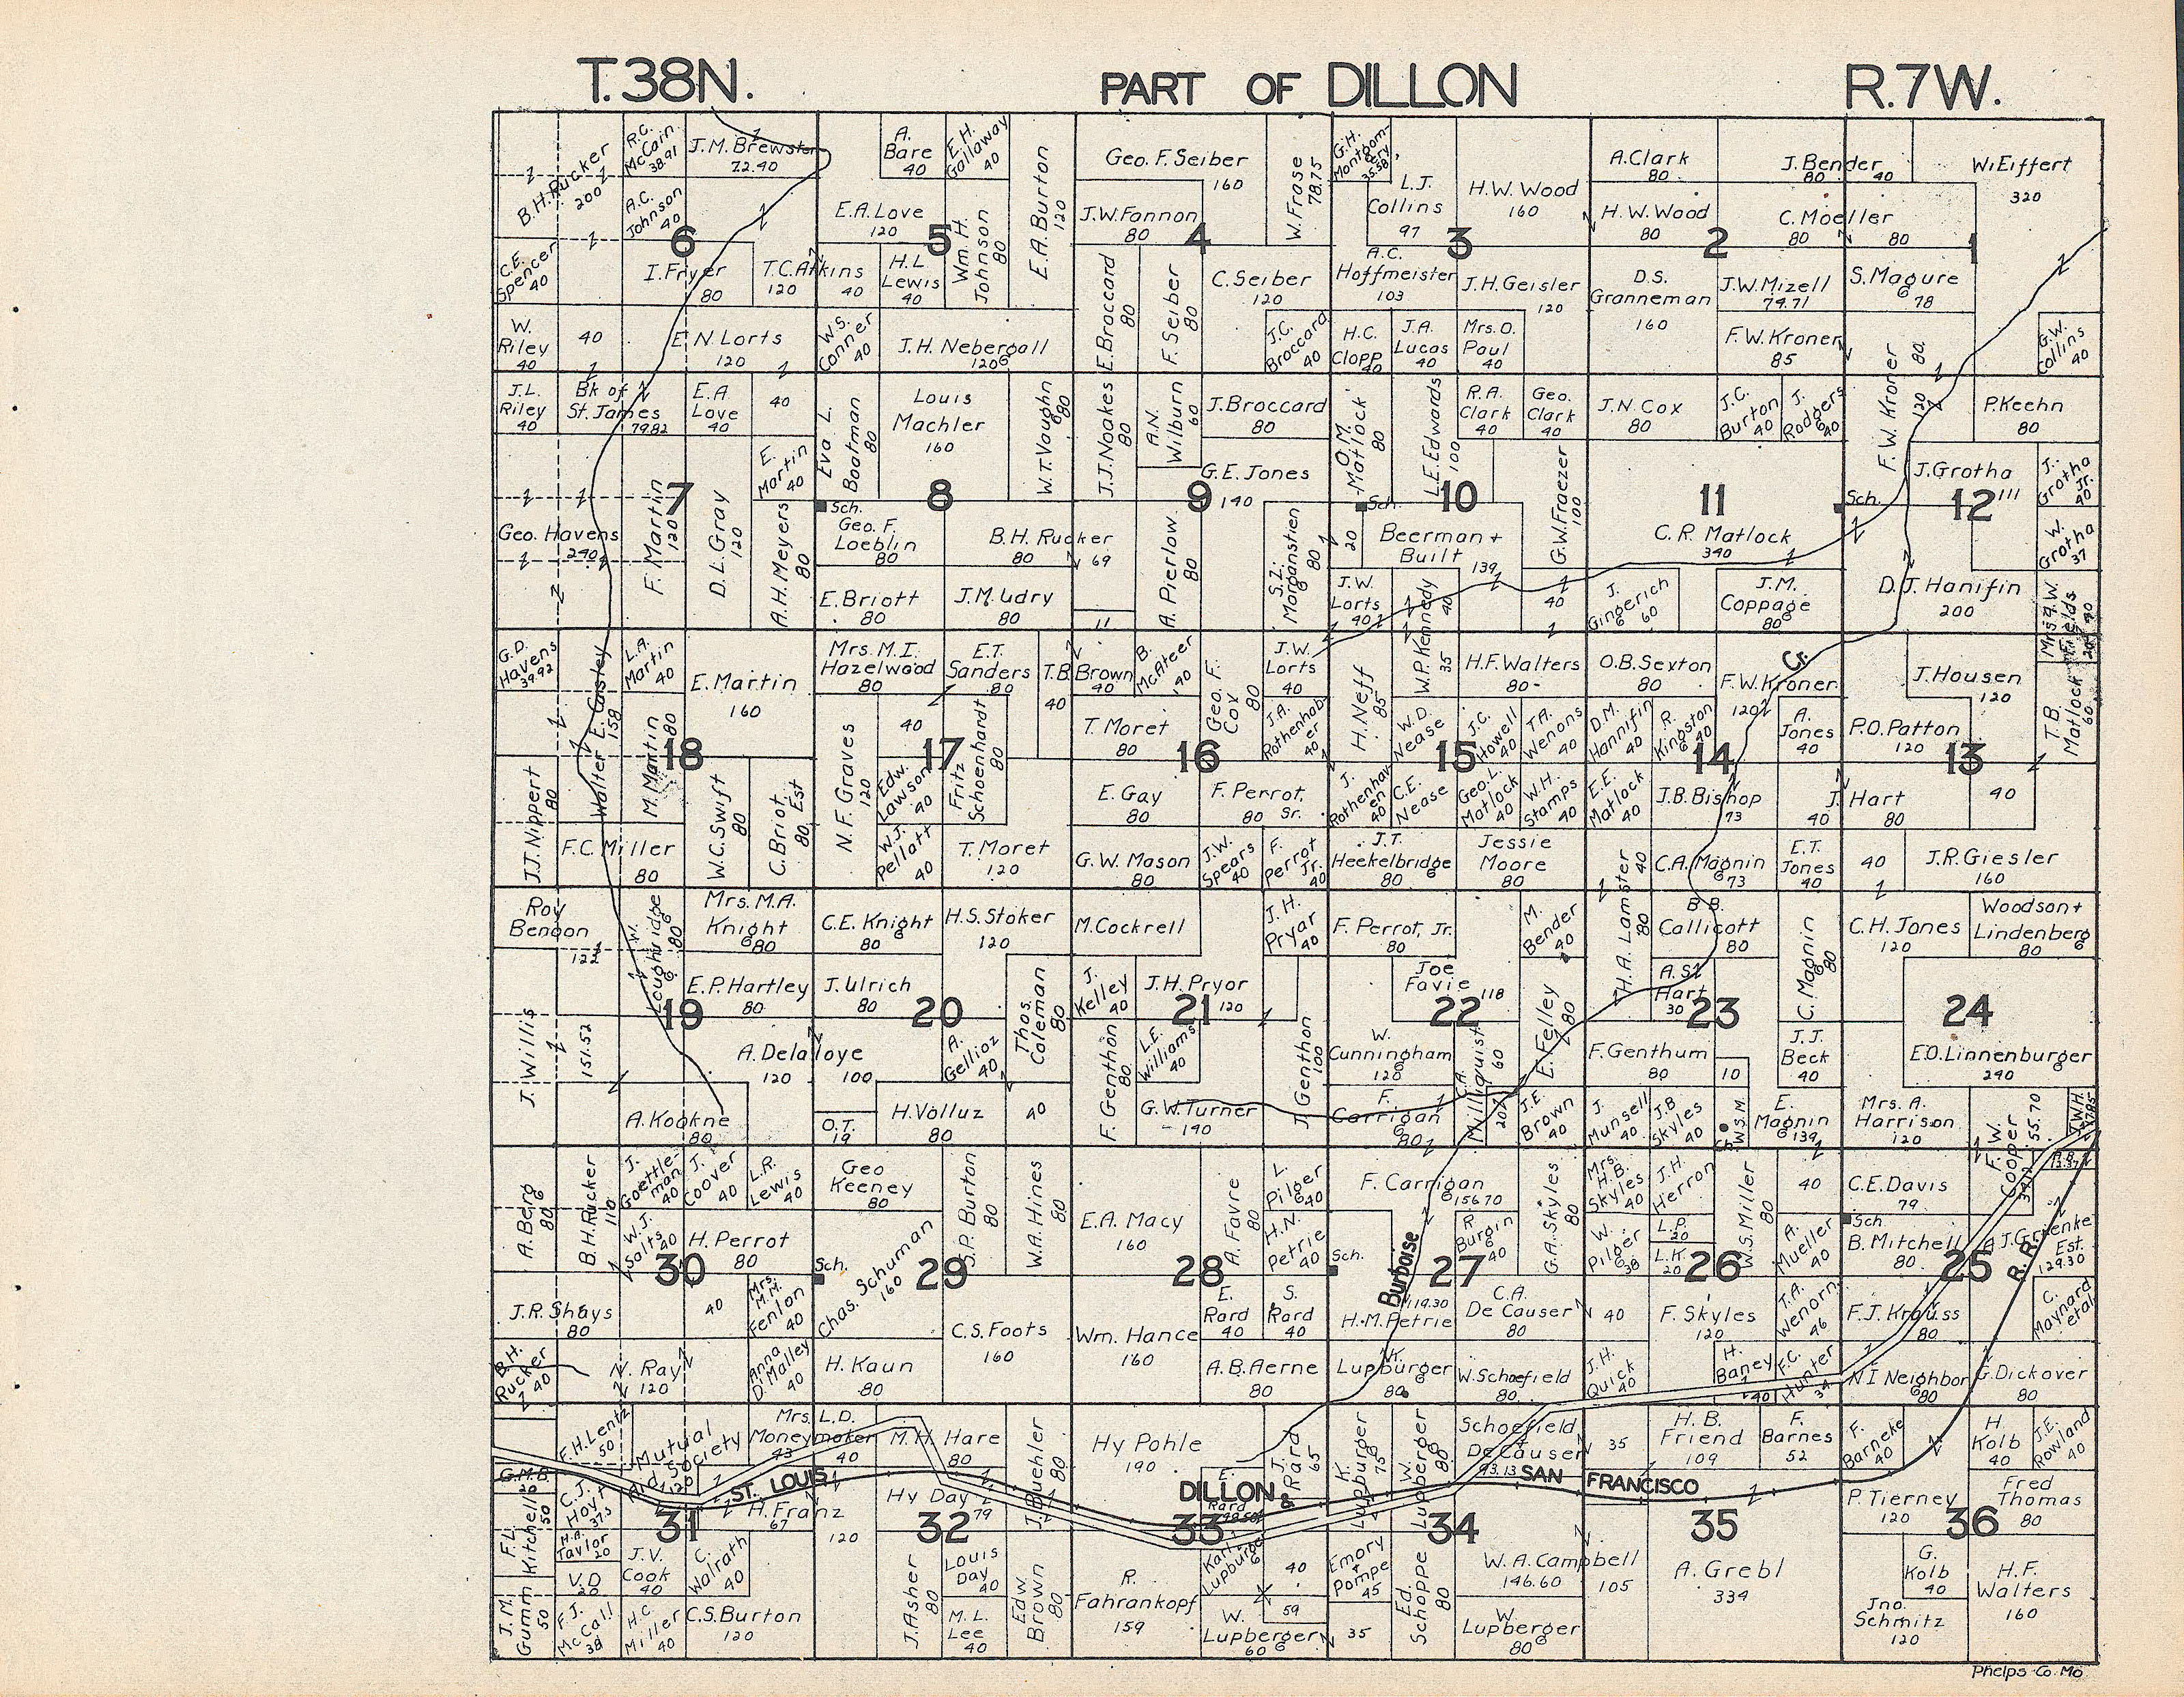 T.38N.
PART OF DILLON
R.7W.
B.H.Rucker
200
R.C.
McCain
38.91
J.M.Brewster
72.40
A.
Bare
40
E.H.
Gallaway
40
E.A.Burton
120
Geo.F.Seiber
160
W.Frase
78.75
G.H.
Montgom-
ery
35.58
L.J.
Collins
97
H.W.Wood
160
A.Clark
80
J.Bender
80
40
W.Eiffert
320
A.C.
Johnson
40
E.A.Love
120
Wm.H.
Johnson
80
J.W.Fannon
80
H.W.Wood
80
C.Moeller
80
80
6
5
4
3
2
1
C.E.
Spencer
40
I.Fryer
80
T.C.Atkins
120
40
H.L.
Lewis
40
E.Broccard
80
F.Seiber
80
C.Seiber
120
A.C.
Hoffmeister
103
J.H.Geisler
120
D.S.
Granneman
160
J.W.Mizell
74.71
S.Magure
78
W.
Riley
40
40
E.N.Lorts
120
W.S.
Conner
40
J.H.Nebergall
120
J.C.
Broccard
40
H.C.
Clopp
40
J.A.
Lucas
40
Mrs.O.
Paul
40
F.W.Kroner
85
80
G.W.
Collins
40
J.L.
Riley
40
Bk of
St.James
79.82
E.A.
Love
40
40
Eva L.
Boatman
80
Louis
Machler
160
W.T.Vaughn
80
J.J.Noakes
80
A.N.
Wilburn
60
J.Broccard
80
O.M.
Matlock
80
L.E.Edwards
100
R.A.
Clark
40
Geo.
Clark
40
J.N.Cox
80
J.C.
Burton
40
J.
Rodgers
40
F.W.Kroner
120
P.Keehn
80
E.
Martin
40
G.E.Jones
140
J.Grotha
111
J.
Grotha
Jr.
40
7
8
9
10
11
12
Geo.Havens
240
F.Martin
120
D.L.Gray
120
A.H.Meyers
80
Sch.
Geo.F.
Loeblin
80
B.H.Rucker
80
69
A.Pierlow
80
S.Z.
Morganstien
80
Sch.
20
Beerman +
Built
139
G.W.Fraezer
100
C.R.Matlock
340
Sch.
W.
Grotha
37
E.Briott
80
J.M.Udry
80
11
J.W.
Lorts
40
W.P.Kennedy
40
35
40
J.
Gingerich
60
J.M.
Coppage
80
D.J.Hanifin
200
G.D.
Havens
39.92
Walter E.Castley
158
L.A.
Martin
40
E.Martin
160
Mrs.M.I.
Hazelwood
80
E.T.
Sanders
80
T.B.Brown
40
40
B.
McAteer
40
Geo.F.
Cox
80
J.W.
Lorts
40
H.Neff
85
H.F.Walters
80
O.B.Sexton
80
F.W.Kroner
120
Cr.
J.Housen
120
T.B.
Matlock
60
M.Martin
80
N.F.Graves
120
40
Fritz
Schoenhardt
80
T.Moret
80
J.A.
Rothenhab
er
40
W.D.
Nease
J.C.
Howell
40
T.A.
Wenons
40
D.M.
Hannifin
40
R.
Kingston
40
A.
Jones
40
P.O.Patton
120
18
17
16
15
14
13
J.J.Nippert
80
W.C.Swift
80
C.Briot
Est
80
Edw.
Lawson
40
E.Gay
80
F.Perrot,
Sr.
80
J.
Rothenhav
en
40
C.E.
Nease
Geo.L.
Matlock
40
W.H.
Stamps
40
E.E.
Matlock
40
J.B.Bishop
73
J.Hart
40
80
40
F.C.Miller
80
W.J.
Pellatt
40
T.Moret
120
G.W.Mason
80
J.W.
Spears
40
F.
Perrot
Jr.
40
J.T.
Heekelbridge
80
Jessie
Moore
80
H.A.Lamster
40
80
C.A.Magnin
73
E.T.
Jones
40
40
J.R.Giesler
160
Roy
Benson
122
W.
Loughridge
80
Mrs.M.A.
Knight
80
C.E.Knight
80
H.S.Stoker
120
M.Cockrell
J.H.
Pryar
40
F.Perrot,Jr.
80
M.
Bender
40
B.B.
Callicott
80
C.Magnin
80
C.H.Jones
120
Woodson+
Lindenberg
80
J.Willis
151.52
E.P.Hartley
80
J.Ulrich
80
Thos.
Coleman
80
J.
Kelley
40
J.H.Pryor
120
J.Genthon
100
Joe
Favie
118
E.Felley
80
A.S.
Hart
30
19
20
21
22
23
24
A.Delaloye
120
100
A.
Gellioz
40
F.Genthon
80
L.E.
Williams
40
W.
Cunningham
120
C.A.
Millquist
60
20
F.Genthum
80
10
J.J.
Beck
40
E.O.Linnenburger
240
A.Kookne
80
O.T.
19
H.Volluz
80
40
G.W.Turner
140
F.
Carrigan
80
J.E.
Brown
40
J.
Munsell
40
J.B.
Skyles
40
W.S.M.
Ch.
E.
Magnin
139
Mrs.A.
Harrison
120
F.W.
Cooper
55.70
J.W.H.
A.Berg
80
B.H.Rucker
110
J.
Goettle-
man
40
J.
Coover
40
L.R.
Lewis
40
Geo
Keeney
80
S.P.Burton
80
W.A.Hines
80
E.A.Macy
160
A.Favre
80
L.
Pilger
40
F.Carrigan
156.70
G.A.Skyles
80
Mrs.
H.B.
Skyles
40
J.H.
Herron
W.S.Miller
80
40
C.E.Davis
79
W.J.
Salts
40
H.Perrot
80
H.N.
Petrie
40
R.
Burgin
40
W.
Pilger
38
L.P.
20
L.K.
20
A.
Mueller
40
Sch
B.Mitchell
80
A.J.Gruenke
Est.
129.30
R.R.
30
29
28
27
26
25
Sch.
Sch.
Burboise
J.R.Shays
80
40
Mrs.
M.M.
Fenlon
40
Chas.Schuman
160
C.S.Foots
160
Wm.Hance
160
E.
Rard
40
S.
Rard
40
H.M.Petrie
119.30
C.A.
De Causer
80
40
F.Skyles
120
T.A.
Wenorn.
46
F.J.Krauss
80
C.
Maynard
etal
B.H.
Rucker
40
N.Ray
120
Anna
D'Malley
40
H.Kaun
80
A.B.Aerne
80
K.
Lupburger
80
W.Schoefield
80
J.H.
Quick
40
H.
Baney
40
F.C.
Hunter
34
N I Neighbor
80
G.Dickover
80
F.H.Lentz
50
Mutual
Aid Society
120
Mrs.L.D.
Moneymaker
43
40
M.H.Hare
80
J.Buehler
80
Hy Pohle
190
J.
Rard
65
K.
Lupburger
75
W.
Lupberger
80
Schoefield
De Causer
93.13
35
H.B.
Friend
109
F.
Barnes
52
F.
Barneke
40
H
Kolb
40
J.E.
Rowland
40
G.M.B.
20
F.L.
Kitchell
50
C.J.
Hoyt
37.5
ST. LOUIS
H.Franz
67
120
Hy Day
79
DILLON
E.
Rard
&
SAN FRANCISCO
P.Tierney
120
Fred
Thomas
80
31
32
33
34
35
36
H.A.
Taylor
20
V.D
20
J.V.
Cook
40
C.
Walrath
40
J.Asher
80
Louis
Day
40
Edw.
Brown
80
R.
Fahrankopf
159
Karl
Lupburger
40
Emory
Pompe
45
Ed.
Schoppe
80
W.A.Campbell
146.60
105
A.Grebl
334
G.
Kolb
40
H.F.
Walters
160
J.M.
Gumm
50
F.J.
McCall
38
H.C.
Miller
40
C.S.Burton
120
M.L.
Lee
40
W.
Lupberger
60
59
35
W
Lupberger
80
Jno.
Schmitz
120
Phelps Co. Mo.